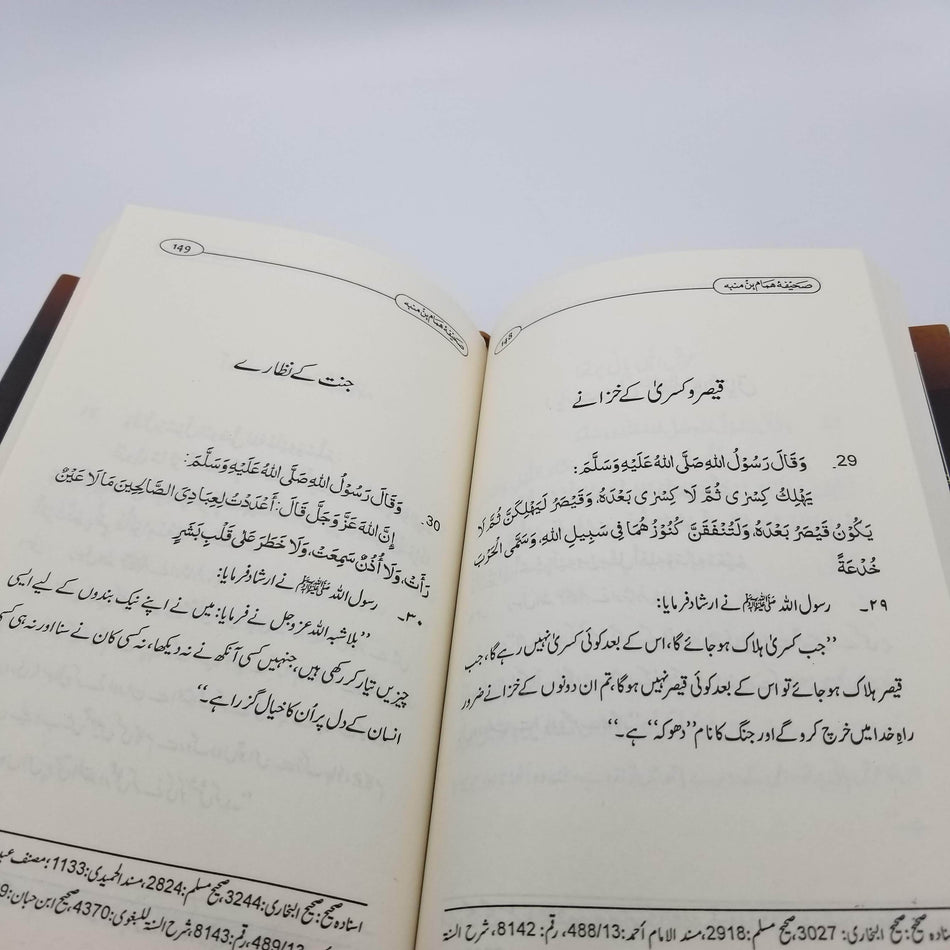 صحیفۂ ہمام بن منبہ
148
قیصر و کسریٰ کے خزانے
29. وَقَالَ رَسُوْلُ اللهِ صَلَّى اللهُ عَلَيْهِ وَسَلَّمَ:
يَهْلِكُ كِسْرٰى ثُمَّ لَا كِسْرٰى بَعْدَهٗ، وَقَيْصَرُ لَيَهْلِكَنَّ ثُمَّ لَا
يَكُوْنُ قَيْصَرُ بَعْدَهٗ، وَلَتُنْفَقَنَّ كُنُوْزُهُمَا فِي سَبِيلِ اللهِ، وَسَمَّى الْحَرْبَ
خُدْعَةً
۲۹۔ رسول اللہ ﷺ نے ارشاد فرمایا:
”جب کسریٰ ہلاک ہو جائے گا، اس کے بعد کوئی کسریٰ نہیں رہے گا، جب
قیصر ہلاک ہو جائے تو اس کے بعد کوئی قیصر نہیں ہوگا، تم ان دونوں کے خزانے ضرور
راہِ خدا میں خرچ کرو گے اور جنگ کا نام ”دھوکہ“ ہے۔“
صحیح: صحیح البخاری: 3027، صحیح مسلم: 2918، مسند الامام أحمد: 488/13، رقم: 8142، شرح السنة
149
صحیفۂ ہمام بن منبہ
جنت کے نظارے
30. وَقَالَ رَسُوْلُ اللهِ صَلَّى اللهُ عَلَيْهِ وَسَلَّمَ:
إِنَّ اللهَ عَزَّ وَجَلَّ قَالَ: أَعْدَدْتُ لِعِبَادِيَ الصَّالِحِينَ مَا لَا عَيْنٌ
رَأَتْ، وَلَا أُذُنٌ سَمِعَتْ، وَلَا خَطَرَ عَلٰى قَلْبِ بَشَرٍ
۳۰۔ رسول اللہ ﷺ نے ارشاد فرمایا:
”بلاشبہ اللہ عز وجل نے فرمایا: میں نے اپنے نیک بندوں کے لیے ایسی
چیزیں تیار کر رکھی ہیں، جنہیں کسی آنکھ نے نہ دیکھا، نہ کسی کان نے سنا اور نہ ہی کسی
انسان کے دل پر اُن کا خیال گزرا ہے۔“
اسنادہ صحیح: صحیح البخاری: 3244، صحیح مسلم: 2824، مسند الحمیدی: 1133؛ مصنف
489/13، رقم: 8143، شرح السنة للبغوی: 4370، صحیح ابن حبان: